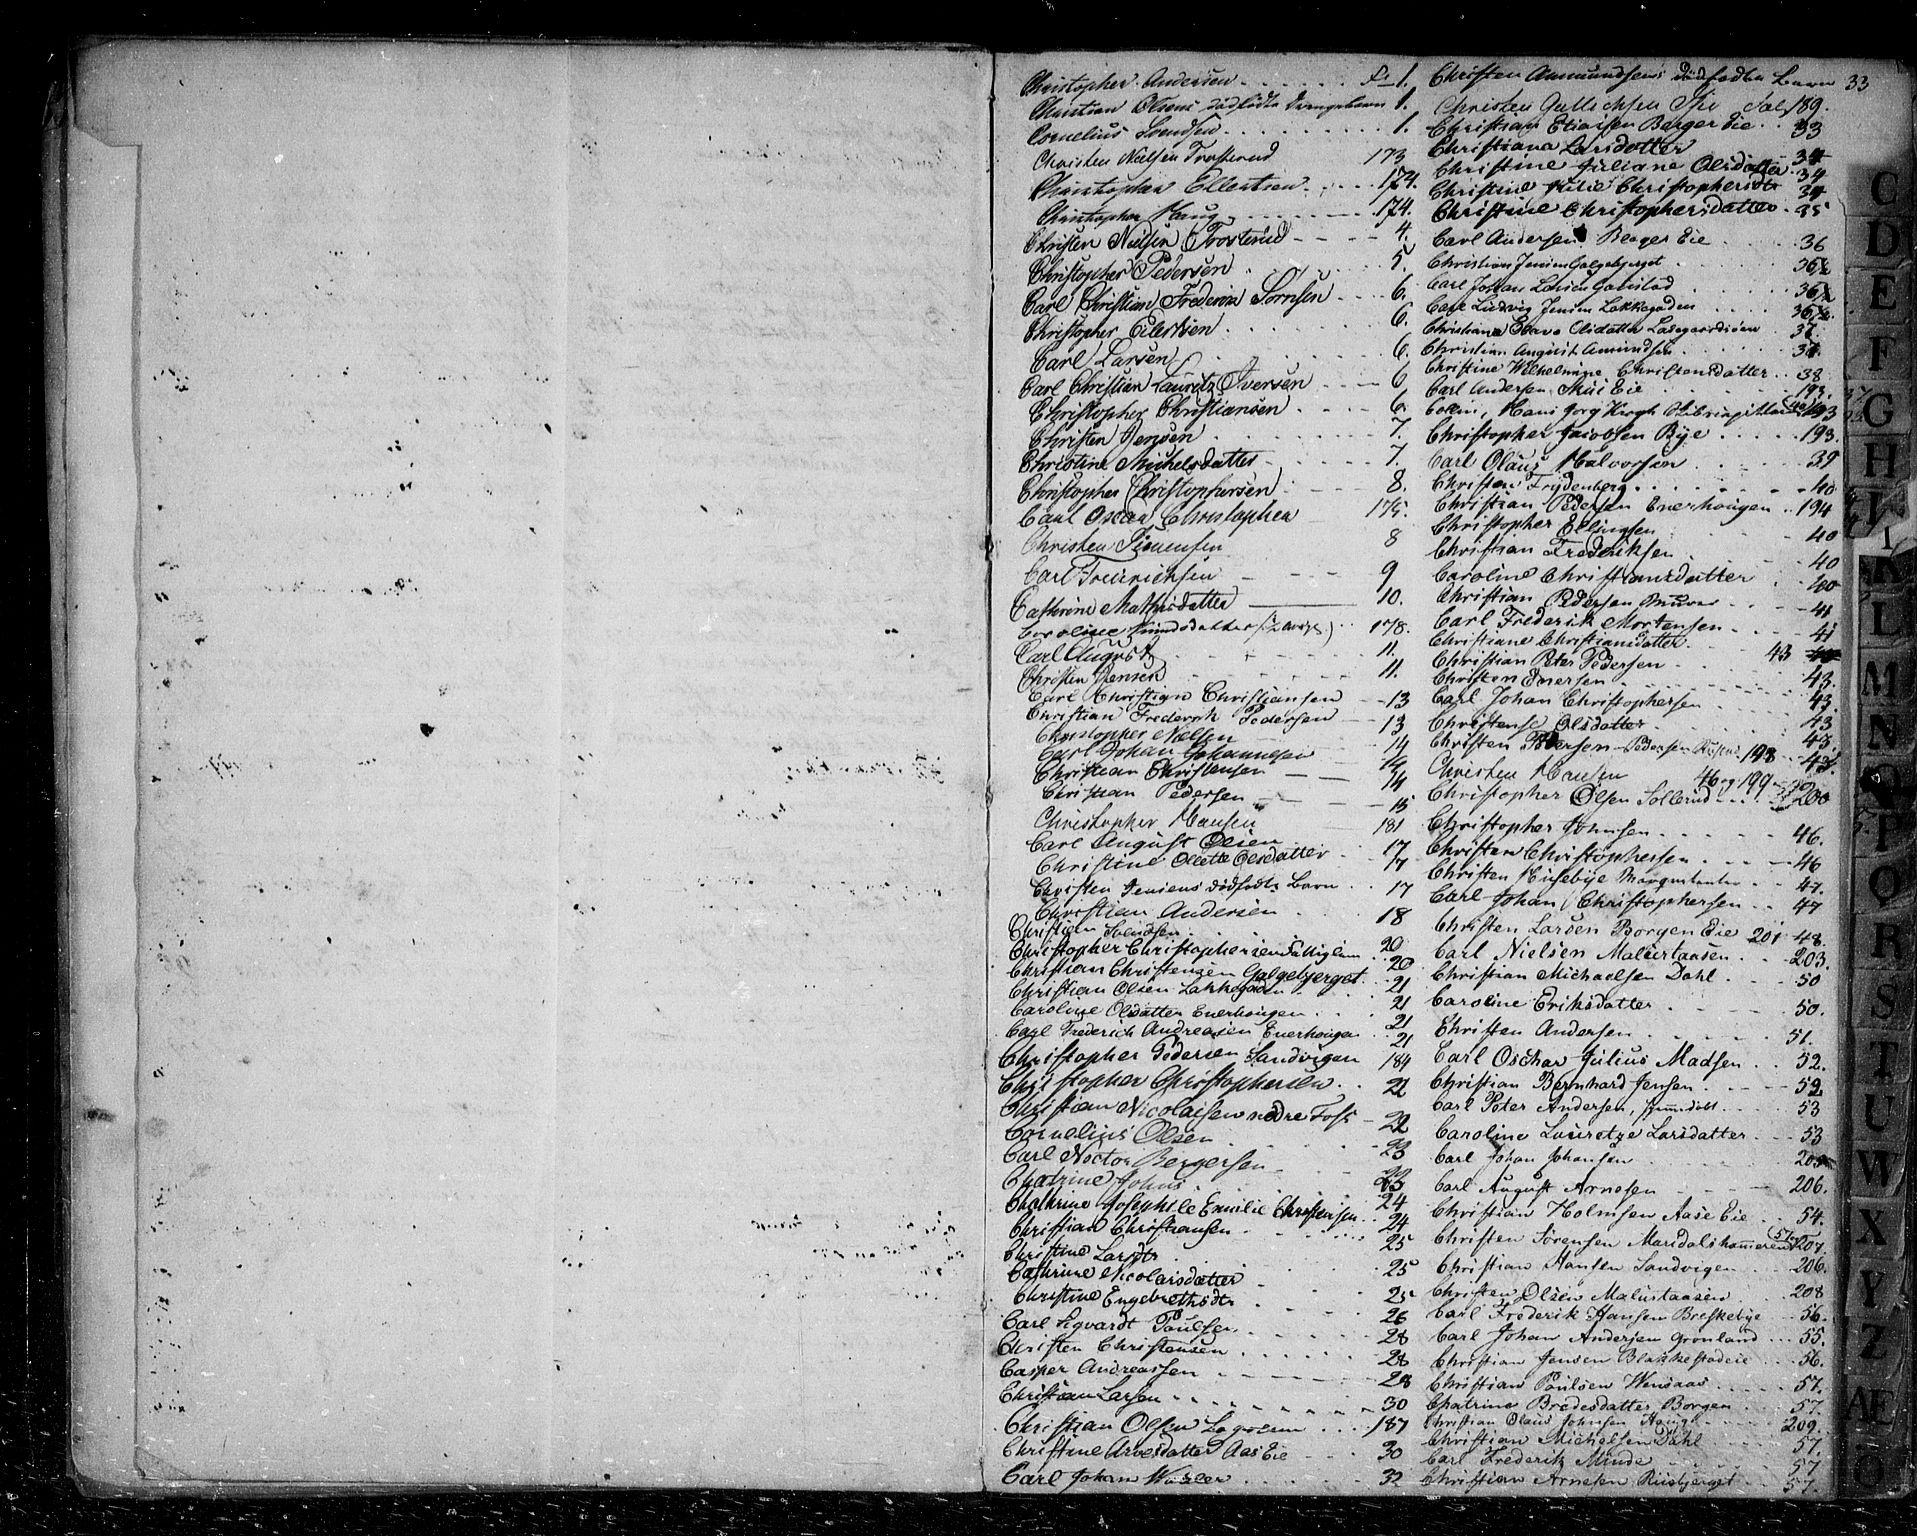 Christopher Andersen . . . . . . Fo 1.
Christian Olsens dødfødte Drengebarn 1.
Cornelius Svendsen . . . . . . 1.
Christen Nielsen Trosterud 173
Christopher Ellertsen . . . . 174.
Christopher Haug . . . . 174.
Christen Nielsen Trosterud - - - 4.
Christopher Pedersen . . . . . 5
Carl Christian Frederik Sørensen . . . 6.
Christopher Eilertsen . . . . . . 6.
Carl Larsen . . . . . 6.
Carl Christian Lauritz Iversen - - - 6
Christopher Christiansen . . . . 6.
Christen Jensen . . . . . . 7.
Christine Michelsdatter . . . . . 7.
Christopher Christophersen . . . . 8.
Carl Oscar Christopher 175.
Christen Simensen 8
Carl Fredrichsen - - - 9
Cathrine Mathisdatter 10.
Caroline 178.
Carl August 11.
Christen Jensen . . . . . . 11.
Carl Christian Christiansen - - 13
Christian Frederik Pedersen - - 13
Christopher Nielsen 14
Carl Johan Johannesen 14
Christian Christensen - - - 14
Christian Pedersen - - - 15
Christopher Hansen 181
Carl August Olsen . . . 17
Christine Olette Olsdatter . 17
Christen Jensens dødfødte Barn . . 17
Christian Andersen . . . 18
Christian Svendsen . . . 20
Christopher Christophersen Fattiglem . . 20
Christian Christensen Galgebjerget . . 21
Christian Olsen Lakkegaden . . . 21
Caroline Olsdatter Enerhougen . . . 21
Carl Frederich Andreasen Enerhougen . . 21
Christopher Pedersen Sandvigen 184
Christopher Christophersen . . 22
Christian Nicolaisen nedre Foss - 22
Cornelius Olsen . . . . 23
Carl Noctor Bergersen - - - 23
Chatrine Johns . . . . 24
Chathrine Josephile Emilie Christensen . . 24
Christian Christiansen . . . . . 25
Christine Larsdtr . . . . 25
Cathrine Nicolaisdatter . . . 25
Christine Engebrethsdtr . . . 26
Carl Sigvardt Paulsen . . . . . 28
Christen Christensen . . . . . 28
Casper Andreassen . . . . . 28
Christian Larsen . . . . . . 30
Christian Olsen . . . 187
Christine Arvesdatter Aas Eie - - 30
Carl Johan . . . . . 32
Christen Amundsens dødfødte Barn 33
Christen Gullichsen 189.
Christian Eliasen Berger Eie . . 33
Christiana Larsdatter . . . . 34
Christine Juliane Olsdatter . 34
Christine Julie Christophersdtr 34
Christine Christophersdatter . 35
Carl Andersen Berger Eie . . . . 36
Christian Jensen Galgebjerget . . . 36½
Carl Johan Larsen . . . . 36½
Carl Ludvig Jensen Lakkegaden . . . . 36½
Christiane Olava Olsdatter 37.
Christian August Amundsen . . . . 37.
Christine Wilhelmine Christensdatter . . 38
Carl Andersen Eie . . . . 193.
Hans Jørg Krogh 193
Christopher Jacobsen Bye . . . . . 193.
Carl Olaus Halvorsen . . . . 39
Christen Frydenberg . . . . . . 40
Christian Pedersen Enerhougen . . 194
Christopher Ellingsen . . . 40
Christian Frederiksen . . . . 40
Caroline Christiansdatter . . 40
Christian Pedersen Muurer . . . . 41
Carl Frederik Mortensen . . . . 41
Christiane Christiansdatter . . . 43
Christian Peter Pedersen . . . . . 43.
Christen Enersen . . . . . 43.
Carl Johan Christophersen . . . 43
Christense Olsdatter . . . . 43.
Christen Pedersen 198 43.
Christen Hansen 46 og 199
Christopher Olsen Sollerud . . . 200
Christopher Johnsen . . . . . . 46.
Christian Christophersen . . . . 46
Christen Husebye Marquetenter . . 47.
Carl Johan Christophersen . . . 47
Christen Larsen Borgen Eie 201 48.
Carl Nielsen Malerhaugen . . 203.
Christian Michaelsen Dahl . . . 50
Caroline Eriksdatter . . . . . 50.
Christen Andersen . . . . . 51.
Carl Oschar Julius Madsen . . . 52.
Christian Bernhard Jensen . . . 52.
Carl Peter Andersen, . . . 53
Caroline Lauretze Larsdatter . . . 53
Carl Johan Johansen . . . . . 205
Carl August Arnesen . . . . 206.
Christian Holmsen Aase Eie . . . 54.
Christen Sørensen Maridalshammeren (57. 207.
Christian Hansen Sandvigen . . 206.
Christen Olsen 208
Carl Frederik Hansen Breskebye . . . 56.
Carl Johan Andersen Grønland . . . 55.
Christian Jensen Blakkestadeie . . . 56.
Christian Paulsen . . . . . 57.
Chatrine Bredesdatter Borgen . . . 57.
Christian Olaus Johnsen Haug . . . 209.
Christian Michelsen Dahl . . . . 57.
Carl Frederik Minde . . . . . 57
Christian Arnesen Riisbjerget . . . 57.
C
D
E
F
G
H
I
K
L
M
N
O
P
Q
R
S
T
U
W
X
Y
Z
AE